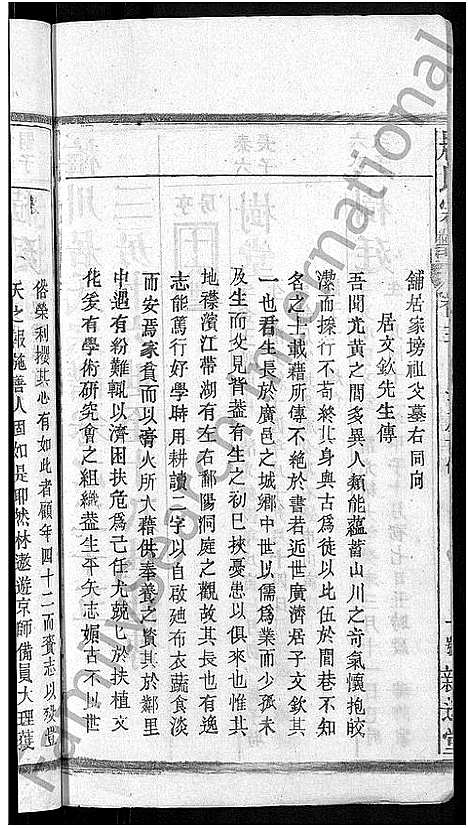 舖居家塝祖父墓右同向
居文欽先生傳
吾聞光黃之間多異人類能蘊蓄山川之奇氣懷抱皎
潔而操行不苟終其身與古爲徒以此伍於閭巷不知
名之士載藉所傳不絶於書若近世廣濟居子文欽其
一也君生長於廣邑之城鄉中世以儒爲業而少孤未
及生而父見背蓋有生之初已挾憂患以俱來也惟其
地襟濱江帶湖有左右鄱陽洞庭之觀故其長也有逸
志能篤行好學時用耕讀二字以自啟廸布衣蔬食淡
而安焉家貧而以膏火所入藉供奉養之資其於鄰里
中遇有粉難輒以濟困扶危爲己任尤兢匕於扶植文
化爰有學術研究會之組織蓋生平矢志媚古不以世
俗榮利攖其心有如此者顧年四十二而賫志以歿豈
天之報施善人固如是耶然林遨遊京師備員大理獲
FamilySearch International